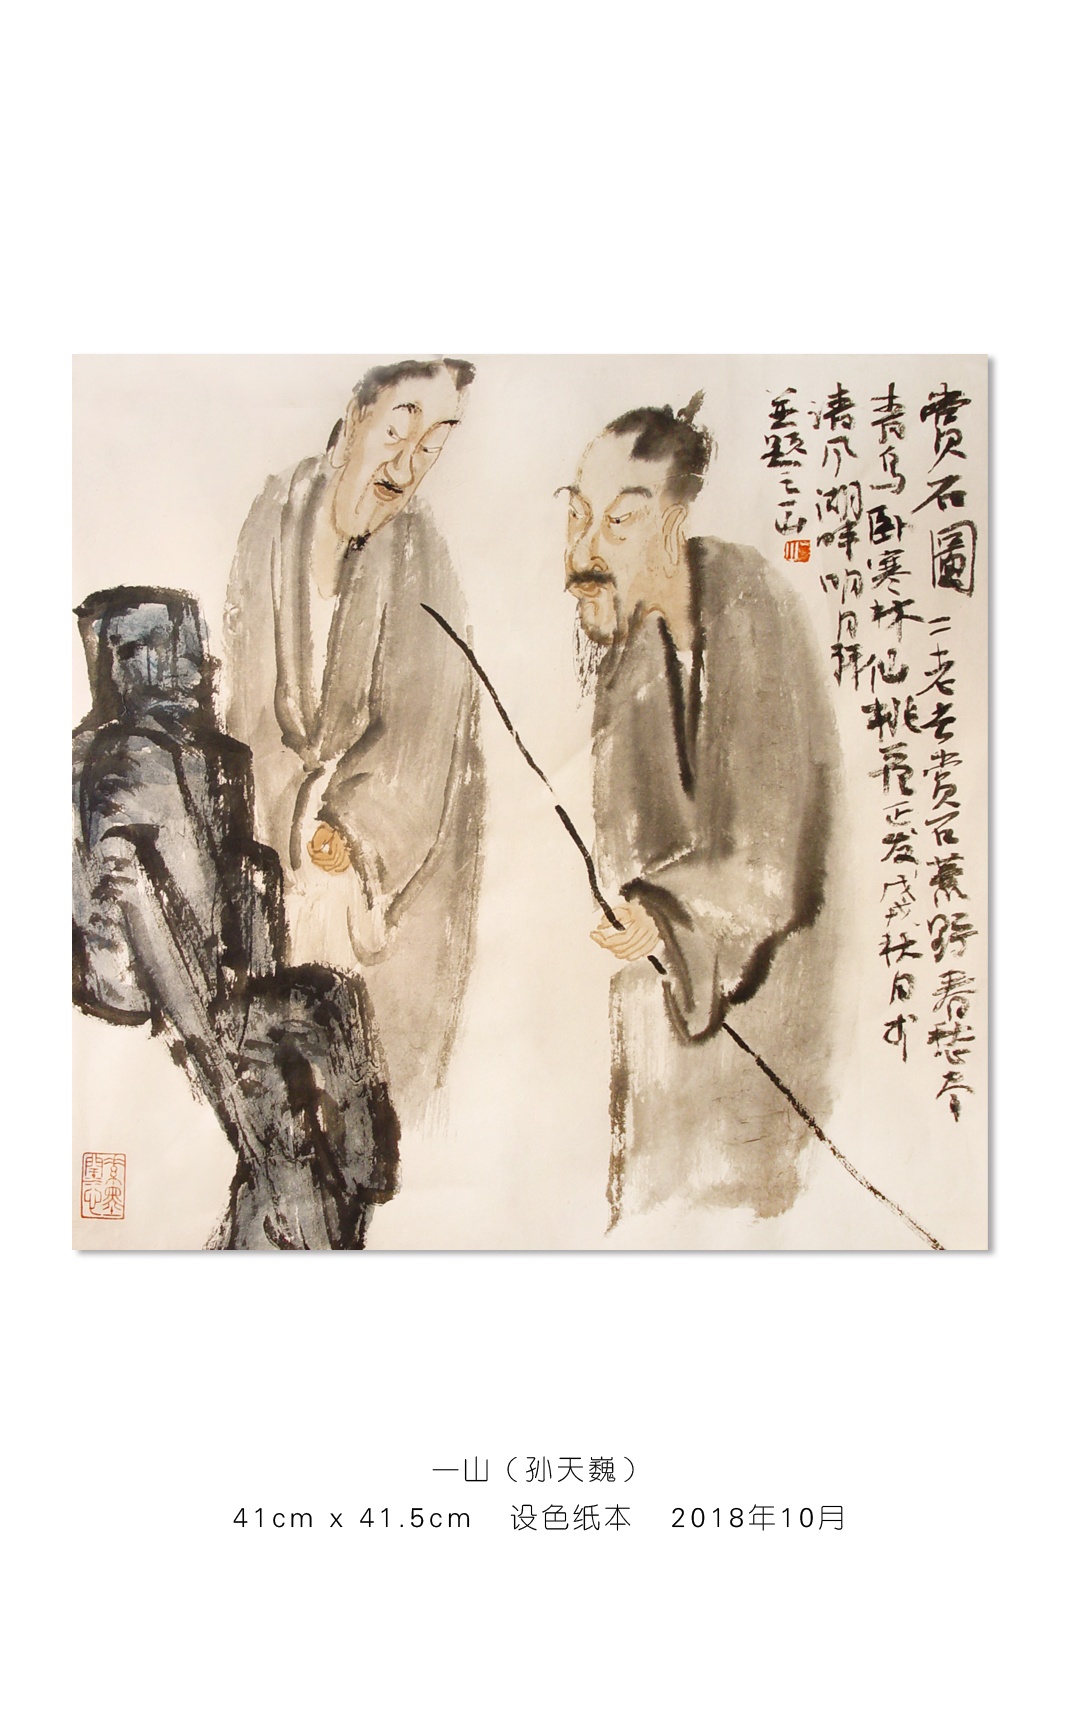 賞石圖 二老去賞石 荒野春愁
青鸟卧寒林 仙桃花正发 戊戌秋月
清风湖畔明月
并题 一山
一山（孙天巍）
41cm x 41.5cm 设色纸本 2018年10月